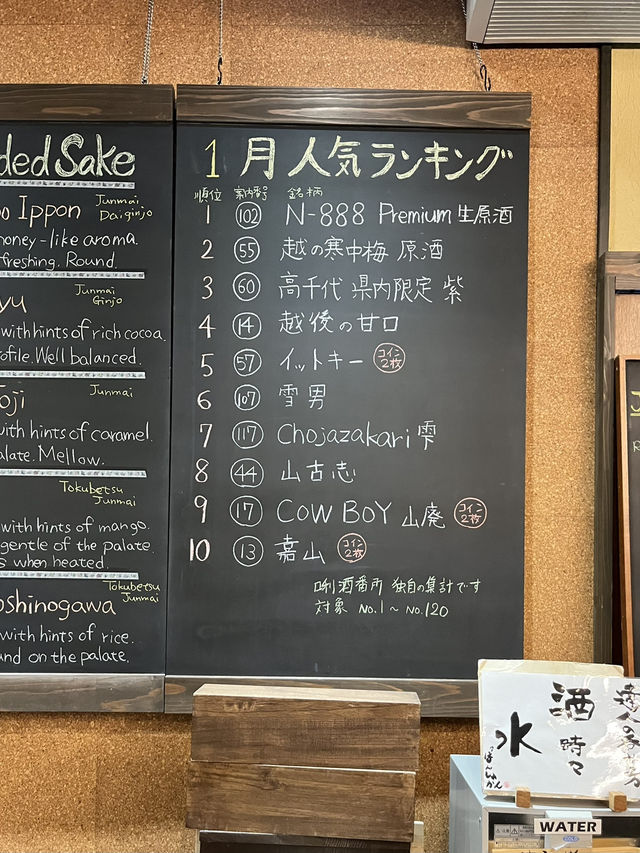 ded Sake
o Ippon
Junmai
Daiginjo
honey-like aroma.
freshing. Round.
yu
Junmai
Ginjo
with hints of rich cocoa.
ofile. Well balanced.
oji
Junmai
with hints of caramel.
alate. Mellow.
Tokubetsu
Junmai
with hints of mango.
gentle of the palate.
s when heated.
Tokubetsu
Junmai
oshinogawa
with hints of rice.
und on the palate.
1月 人気ランキング
順位 案内番号 銘柄
1 102 N-888 Premium 生原酒
2 55 越の寒中梅 原酒
3 60 高千代 県内限定 紫
4 14 越後の甘口
5 57 イットキー コイン2枚
6 107 雪男
7 117 Chojazakari 雫
8 44 山古志
9 17 COWBOY 山廃 コイン2枚
10 13 嘉山 コイン2枚
唎酒番所 独自の集計です
対象 No.1〜No.120
酒
時々
水
ぽんしゅかん
WATER